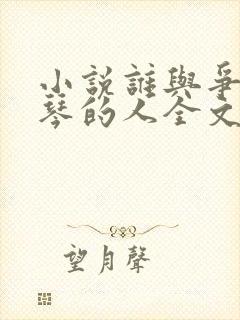 小說誰與爭
琴的人全文
望月聲